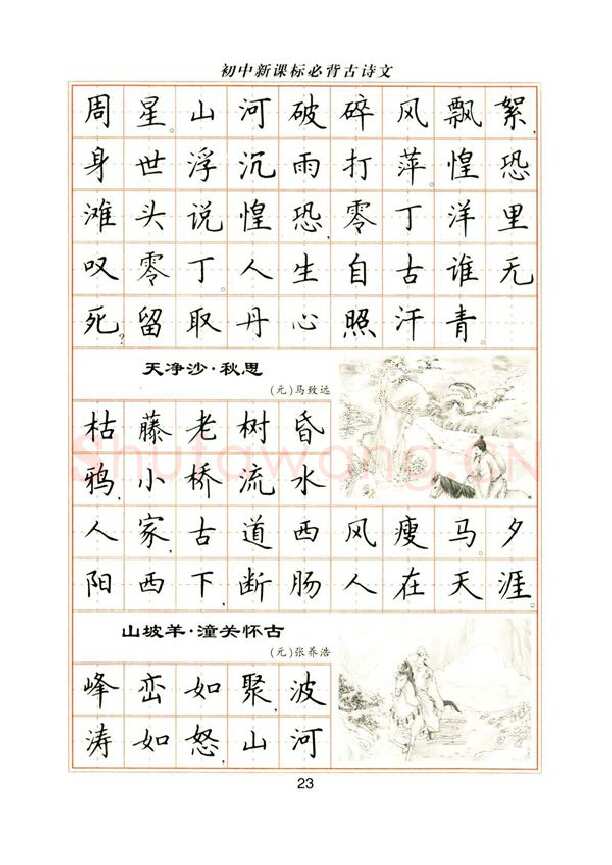 初中新课标必背古诗文
周星。山河破碎风飘絮,
身世浮沉雨打萍。惶恐
滩头说惶恐,零丁洋里
叹零丁。人生自古谁无
死?留取丹心照汗青。
天净沙·秋思
(元)马致远
枯藤老树昏
鸦,小桥流水
人家,古道西风瘦马。夕
阳西下,断肠人在天涯。
山坡羊·潼关怀古
(元)张养浩
峰峦如聚,波
涛如怒,山河
23
Shufawang.CN